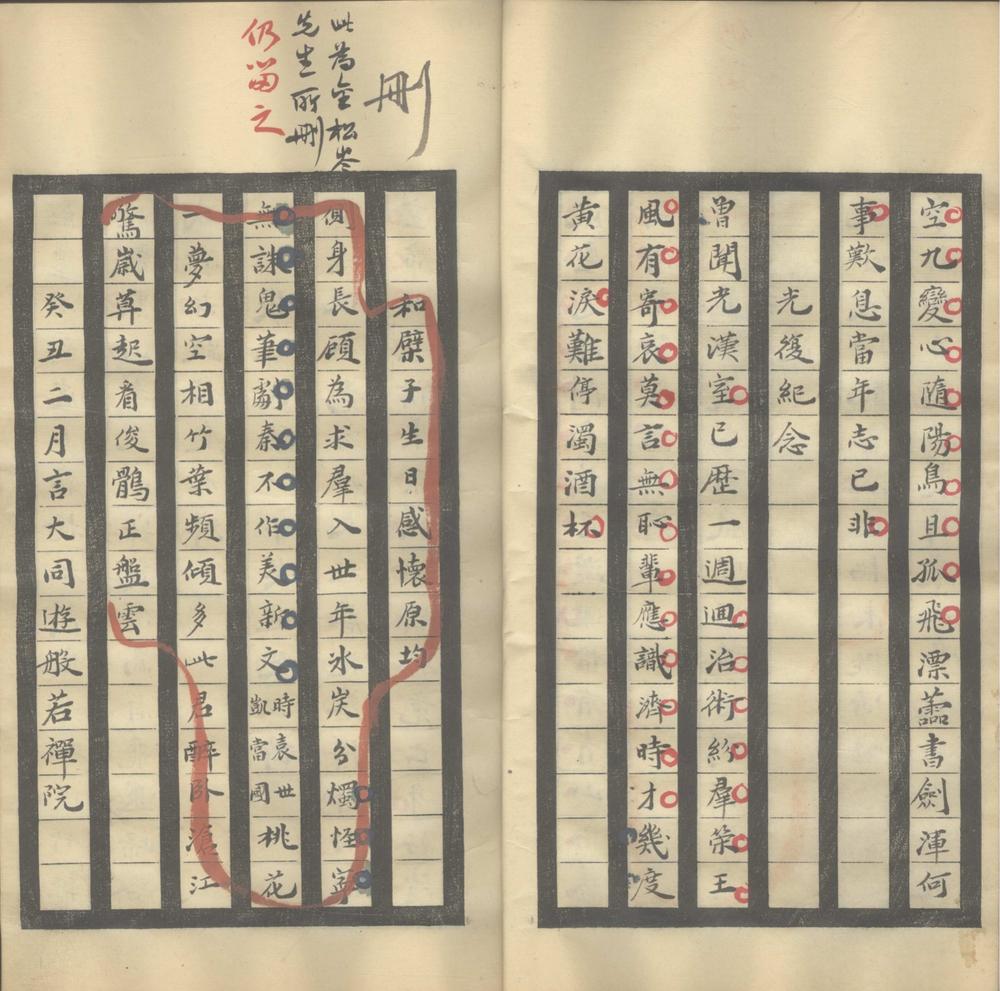 空九變心隨陽鳥且孤飛漂蘦書劍渾何
事歎息當年志已非
光復紀念
曾聞光漢室已歷一週迴治術紛羣策王
風有寄哀莫言無恥輩應識濟時才幾度
黃花淚難停濁酒杯
刪
此為金松岑
先生所刪
仍留之
和檗子生日感懷原均
側身長顧為求羣入世年冰炭分燭怪寧
無誅鬼筆劇秦不作美新文時袁世凱當國桃花
一夢幻空相竹葉頻傾多此君醉臥滄江
驚歲莫起看俊鶻正盤雲
癸丑二月言大同遊般若禪院